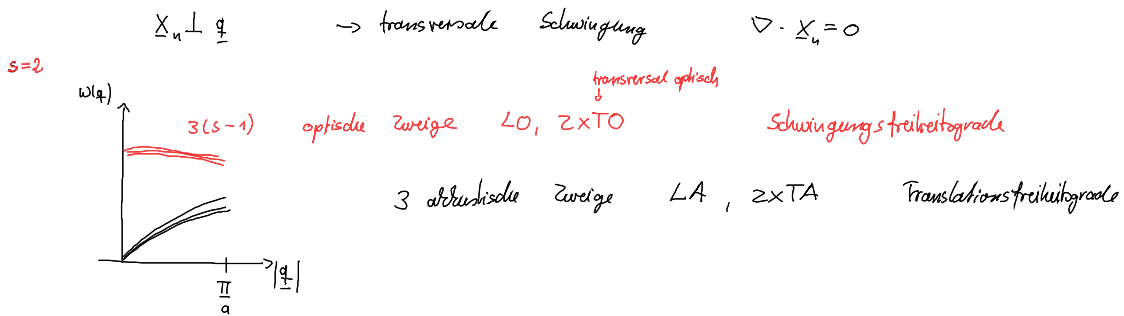 X_n ⊥ q → transversale Schwingung ∇ · X_n = 0
s=2
transversal optisch
ω(q)
3(s-1) optische Zweige LO, 2xTO Schwingungsfreiheitsgrade
3 akkustische Zweige LA, 2xTA Translationsfreiheitsgrade
|q|
π
a